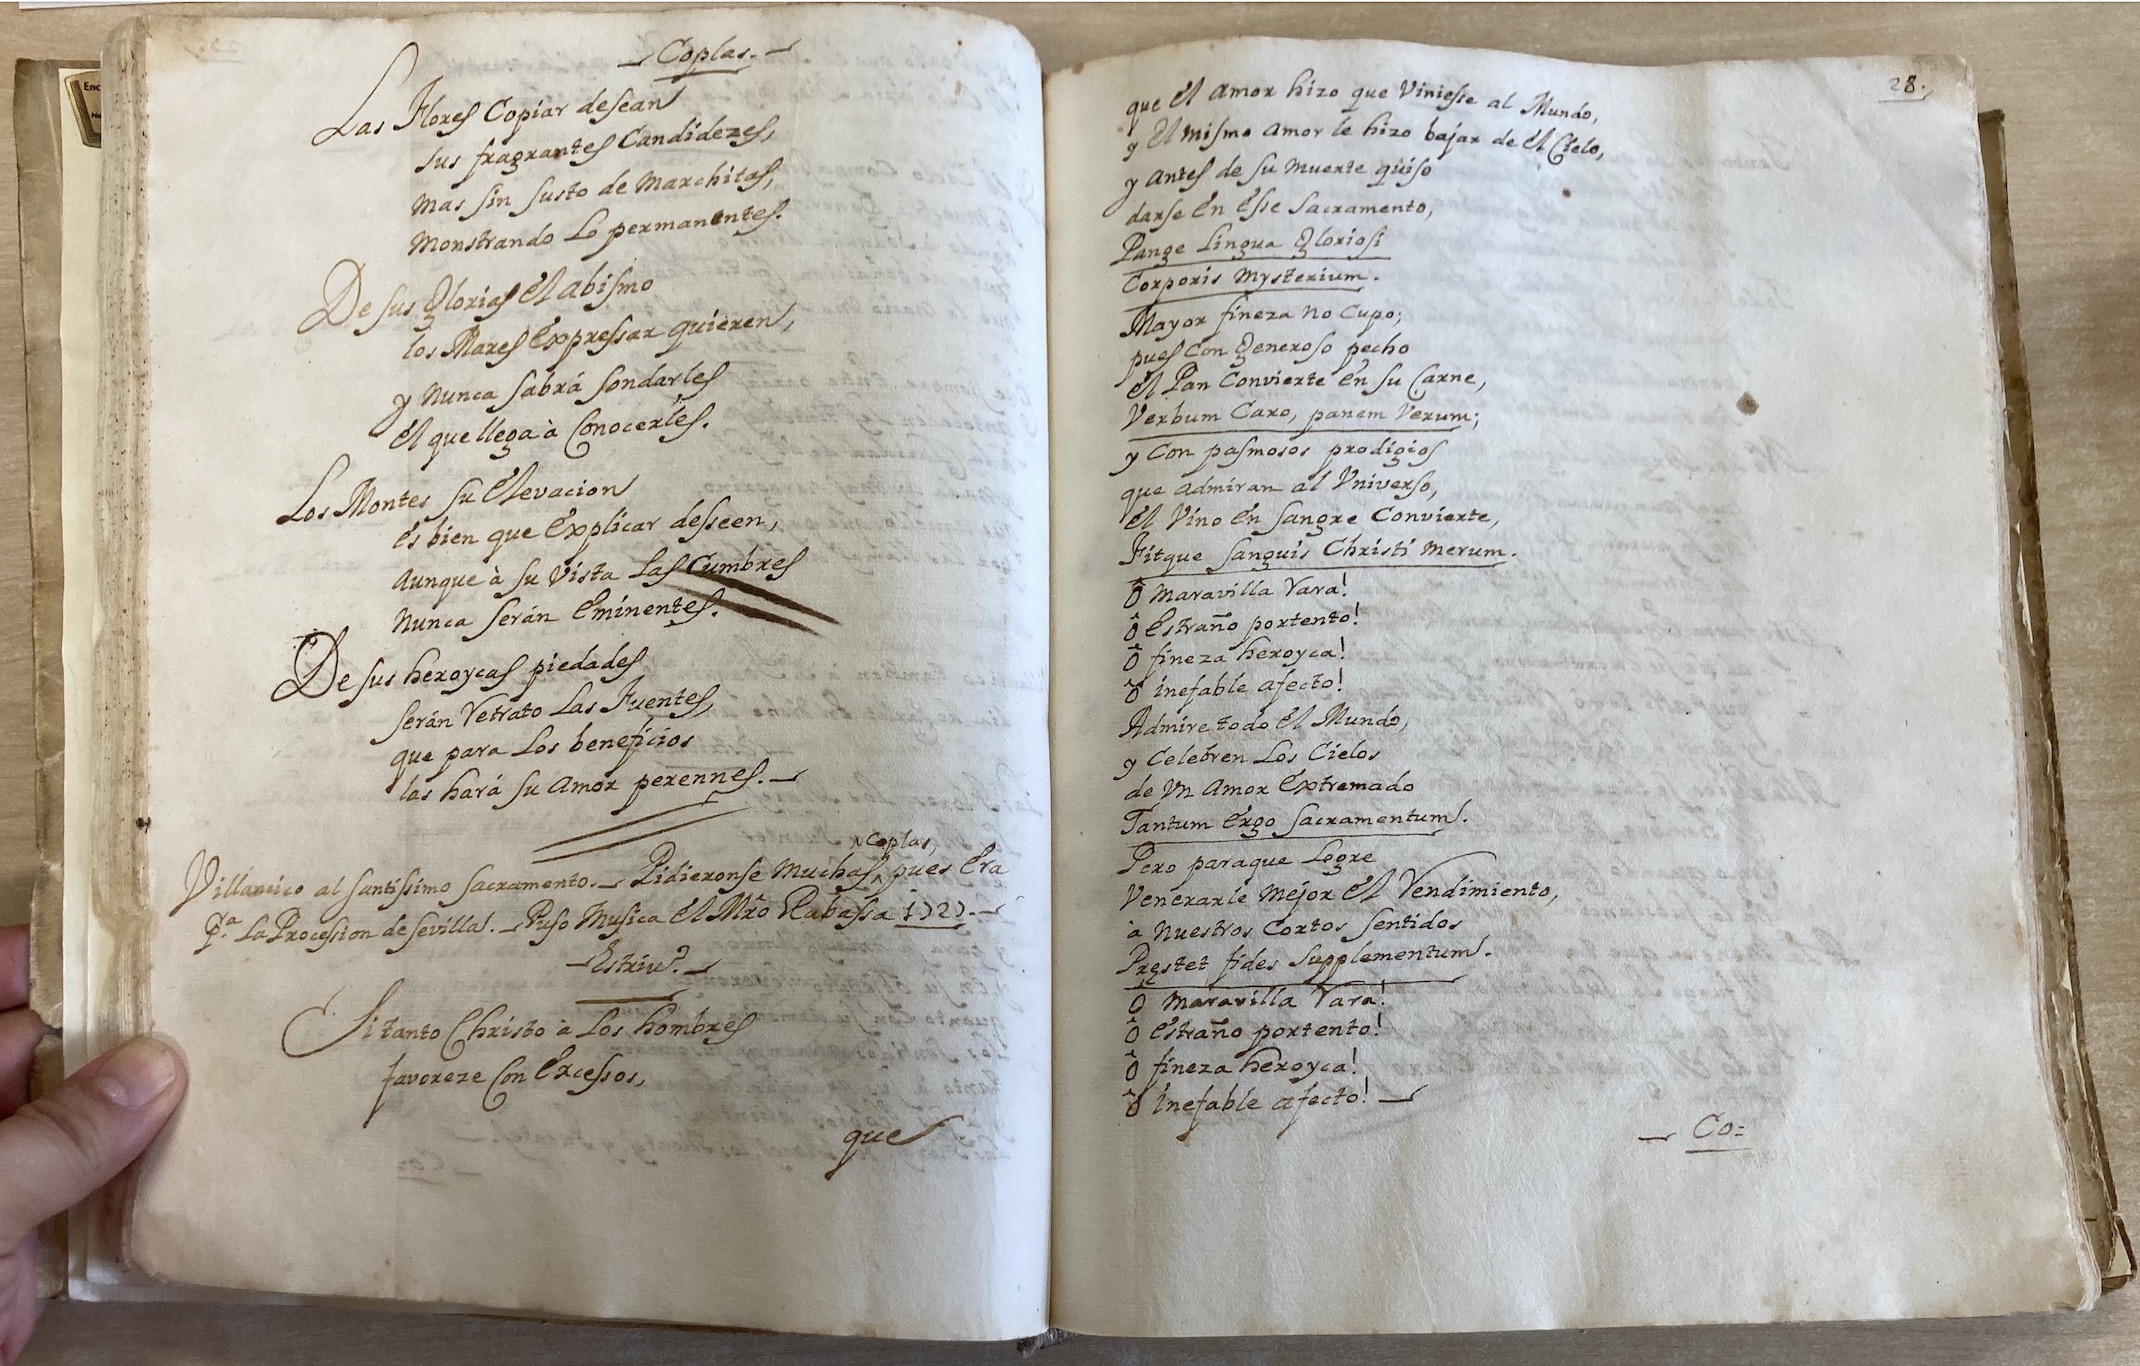 Coplas.
Las Flores Copiar desean
sus fragrantes Candidezes,
mas sin susto de Marchitas,
monstrando Lo permanentes.
De sus Glorias el abismo
los Mares expressar quieren,
y nunca sabrá sondarles
el que llega à Conocerles.
Los Montes su elevacion
és bien que explicar desseen,
aunque à su vista Las Cumbres
nunca serán eminentes.
De sus heroycas piedades
serán retrato Las Fuentes,
que para Los beneficios
las hará su amor perennes.
Coplas,
Villancico al santissimo sacramento. Pidieronse muchas, pues era
p.a La Procession de sevilla. Puso Musica el Mr̃o Rabassa 1727.
Estriv.o
Si tanto Christo à Los hombres
favoreze con excessos,
que
28.
que el amor hizo que viniesse al Mundo,
y el mismo amor le hizo bajar de el Cielo,
y antes de su muerte quiso
darse en esse sacramento,
Pange Lingua Gloriosi
Corporis mysterium.
Mayor fineza no cupo;
pues con Generoso pecho
el Pan Convierte en su Carne,
Verbum Caro, panem Verum;
y con pasmosos prodigios
que admiran al Vniverso,
el Vino en sangre Convierte,
Fitque sanguis Christi merum.
ô maravilla rara!
ô estraño portento!
ô fineza heroyca!
ô inefable afecto!
Admire todo el Mundo,
y Celebren Los Cielos
de vn amor extremado
Tantum ergo sacramentum.
Pero paraque Logre
Venerarle mejor el rendimiento,
à nuestros Cortos sentidos
Præstet fides supplementum.
ô maravilla rara!
ô estraño portento!
ô fineza heroyca!
ô inefable afecto!
Co=